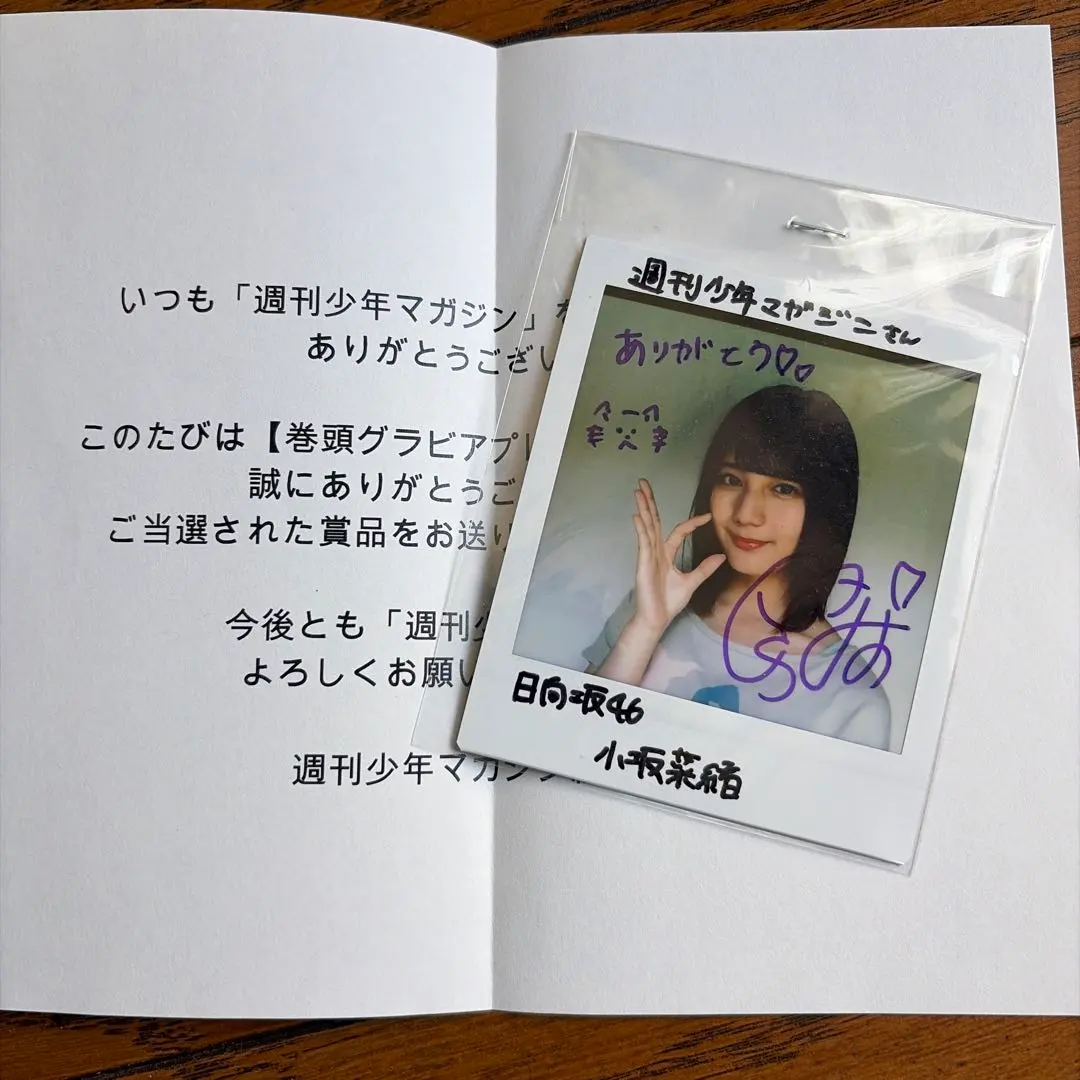 いつも「週刊少年マガジン」を
ありがとうござい
このたびは【巻頭グラビアプレ
誠にありがとうご
ご当選された賞品をお送り
今後とも「週刊少
よろしくお願い
週刊少年マガジン
週刊少年マガジンさん
ありがとう♡♡
日向坂46
小坂菜緒